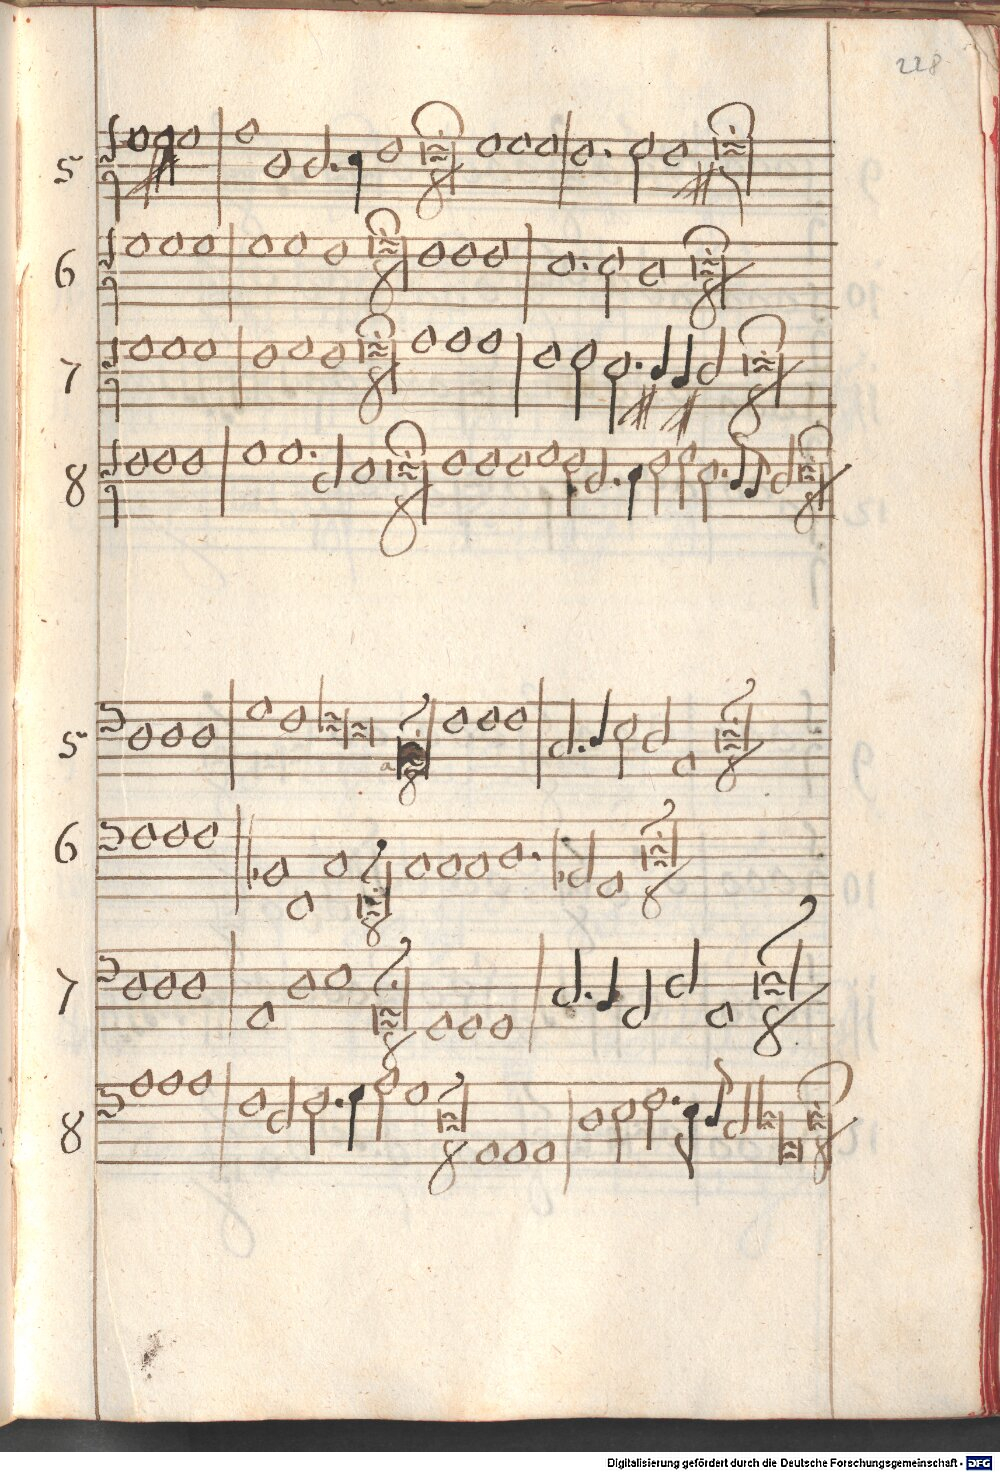 228
5
6
7
8
5
6
7
8
Digitalisierung gefördert durch die Deutsche Forschungsgemeinschaft - DFG